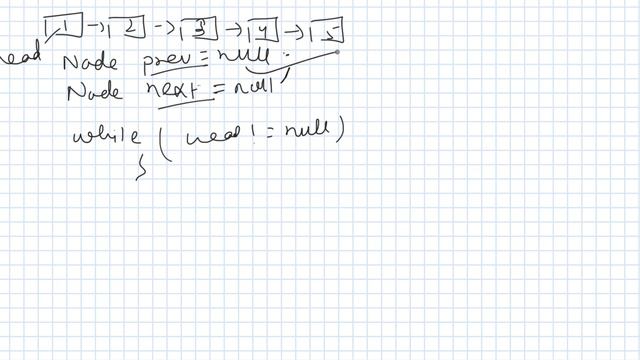 1 → 2 → 3 → 4 → 5
head Node prev = null
Node next = null
while ( head != null )
{